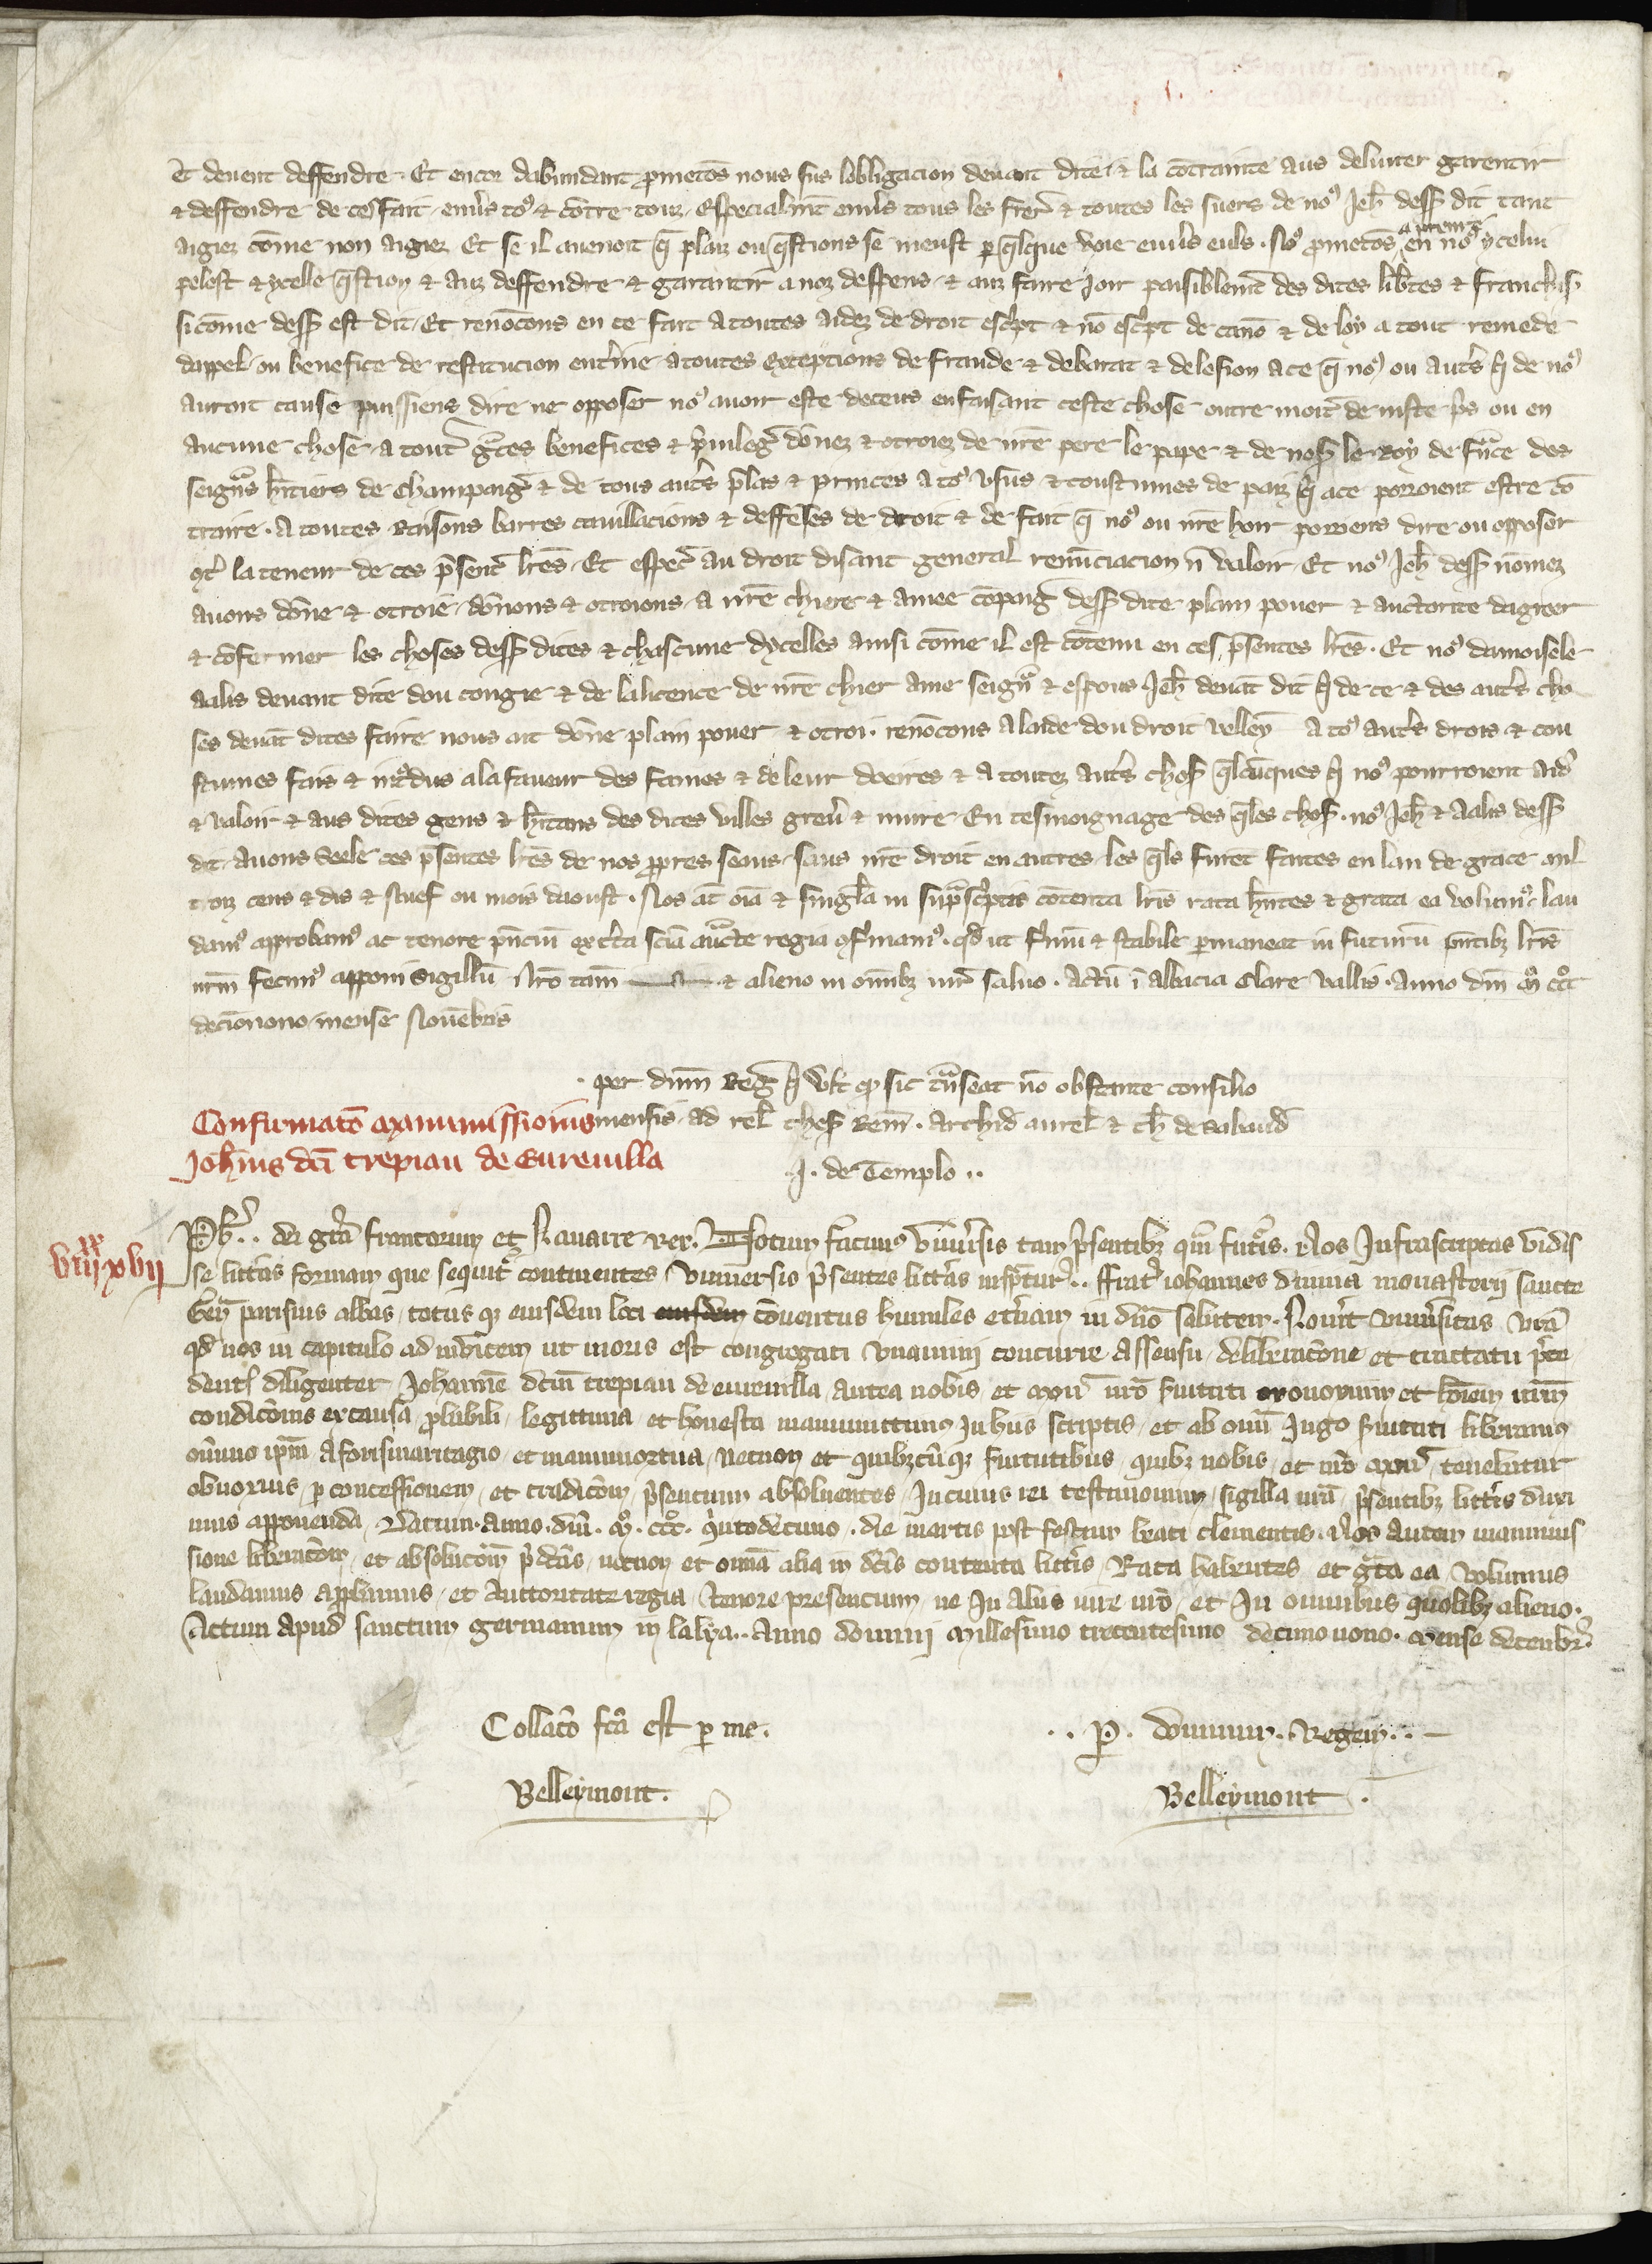 et devent deffendre. Et encor dabundant prometōs nous sus lobligacion devant dite, et la cōtrainte aus delivrer garentir
et deffendre de ces fait envs tos et cōtre touz, especialmēt envs tous les freres et toutes les suers de nos Jeh dess dit tant
aigiez cōme non aigiez Et se il avenoit q plaiz ou qstions se meust p qlque voie envs euls. Nos prometōs a prenre en nos ycelui
pelest et ycelle qstion et auz deffendre et garantir a noz despens et auz faire joir paisiblemēt des dites libtes et franchis
si cōme dess est dit. Et renōcons en ce fait a toutes aidez de droit escpt et nō escpt de canō et de loy a tout remede
dappel ou benefice de restitucion enterine a toutes exceptions de fraude et de barat et de lesion a ce q nos ou auts q de nos
auront cause puissiens dire ne opposer nos avoir este deceus en faisant ceste chose outre moit de juste ps ou en
aucune chose, a tout gces benefices et pvileg dōnez et otroiez de nre pere le pape et de noss le Roy de Fnce des
seigns hitiers de Champaig et de tous auts plas et princes a tos usus et coustumes de paiz q a ce porroient estre cō
traire. A toutes Raisons barres cavillacions et deffēses de droit et de fait q nos ou nre hoir porriens dire ou opposer
cont la teneur de ces psent lres. Et espec au droit disant general renūciacion n valoir. Et nos Jeh dess nōmez
avons dōne et otroie, dōnons et otroions, a nre chiere et amee cōpaig dess dite plain pover et auctorite dagreer
et cōfermer les choses dess dites et chascune dycelles ainsi cōme il est cōtenu en ces psentes lres. Et nos damoisele
Aalis devant dite dou congie et de la licence de nre chier ame seign et espous Jeh devāt dit q de ce et des auts cho
ses devāt dites faire nous ait dōne plain pover et otroi. renōcons a laide dou droit velley a tos auts drois et cou
stumes fais et intdus a la faveur des fames et de leur doeires et a toutez auts chos qlcūques q nos pourroient aid
et valoir et aus dites gens et hitans des dites villes grev et nuire En tesmoignage des qles chos. nos Jeh et Aalis dess
dit, avons Seele ces psentes lres de nos ppres seaus, saus nre droit en autres les qls furēt faites en lan de grace mil
troiz cens et dis et nuef ou mois daoust. Nos āt oīa et singla in supscptis cōtenta lris rata hntes et grata ea volum lau
dam approbam ac tenore pnciu ex cta scia auctte regia cfmam. qd ut fmu et stabile pmaneat in futurū pntibz lris
nrm fecim apponi sigillū Nro tam et alieno in omibz jur salvo. Actū ī abbacia Clare vallis. Anno dni M ccc
decionono mense Novēbris

per dnm Reg q vlt q sic tnseat nō obstante consilio
Confirmatō manumissionis mensis ad rel thes Rem. Archid aurel et Ch de Rabaud
Johnis dci trepiau de Eurenilla J. de Templo ..

viiixx xvii
Ph .. dei gra francorum et Navarre rex. Notum facim Univsis tam psentibz qm futis. Nos Infrascriptas vidis
se litteras formam que sequit continentes Universis psentes litteras inspectur .. Frat iohannes divina monasterii sancte
Gen parisius abbas, totus qz eiusdem loci eiusdem conventus humiles eternam in dno salutem. Noverit univsitas vra
qd nos in capitulo ad invicem ut moris est congregati Unanimi concurrente Assensu, deliberacōne et tractatu prece
dent diligenter Johannē dcm trepiau de eurenilla, antea nobis et mon nro servituti obnoxium et hoīem nrm
condicōnis ex causa pbabili, legittima et honesta manumittimus in hiis scriptis, et ab omni Jugo servituti liberamus
omnino ipm A forismaritagio et manumortua, necnon et quibzcūqz servitutibus, quibz nobis et nro mon tenebatur
obnoxius, p concessionem et tradicōm psentium absolventes. In cuius rei testimonium, sigilla nra psentibz litteris duxi
mus apponenda. Datum. anno. dni. M. ccc. quitodecimo. die martis post festum beati clementis. Nos autem manumis
sionē liberacōm, et absolucōm pdctās, necnon et omnia alia in dctis contenta litteris Rata habentes et gta ea volumus
laudamus approbamus, et Auctoritate regia, tenore presencium, ne In aliis iure nro, et In omnibus quolibz alieno.
Actum apud sanctum germanum in laya .. Anno domini millesimo trecentesimo decimo nono. mense decembr.

Collacō fca est p me.
Belleymont.

.. P. dominum. Regem ..
Belleymont.